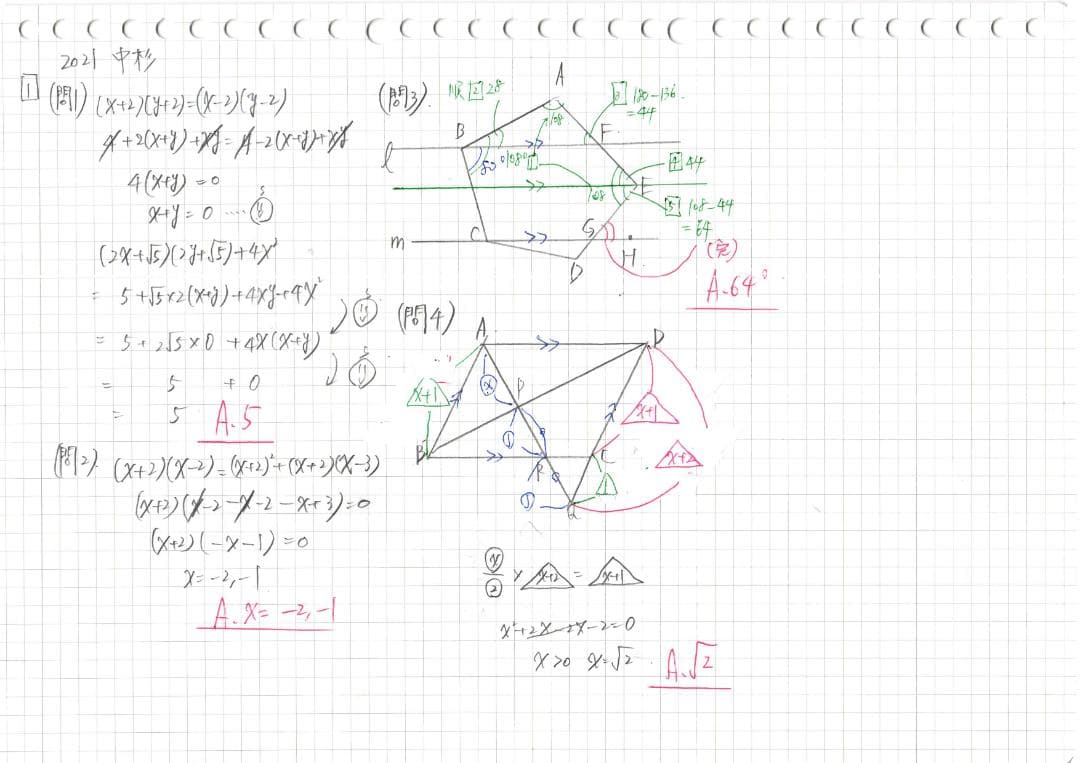 2021 中杉
1
(問1) (x+2)(y+2)=(x-2)(y-2)
4+2(x+y)+xy=4-2(x+y)+xy
4(x+y)=0
x+y=0 ……
(2x+√5)(2y+√5)+4x²
= 5+√5×2(x+y)+4xy+4x²
= 5+2√5×0+4x(x+y)
= 5 +0
= 5 A.5
(問2). (x+2)(x-2)=(x+2)²+(x+2)(x-3)
(x+2)(x-2-x-2-x+3)=0
(x+2)(-x-1)=0
x=-2,-1
A.x=-2,-1
(問3).
順 2 28
A
3 180-136
=44
108
B
F
l
50°
108°
1
4 44
E
108
5 108-44
=64
C
G
m
H
D
(完)
A.64°
(問4)
A
D
x
P
x+1
x+1
1
B
R
C
x+2
1
1
Q
x/2 × x+2 = x+1
x²+2x-2x-2=0
x>0 x=√2 A.√2